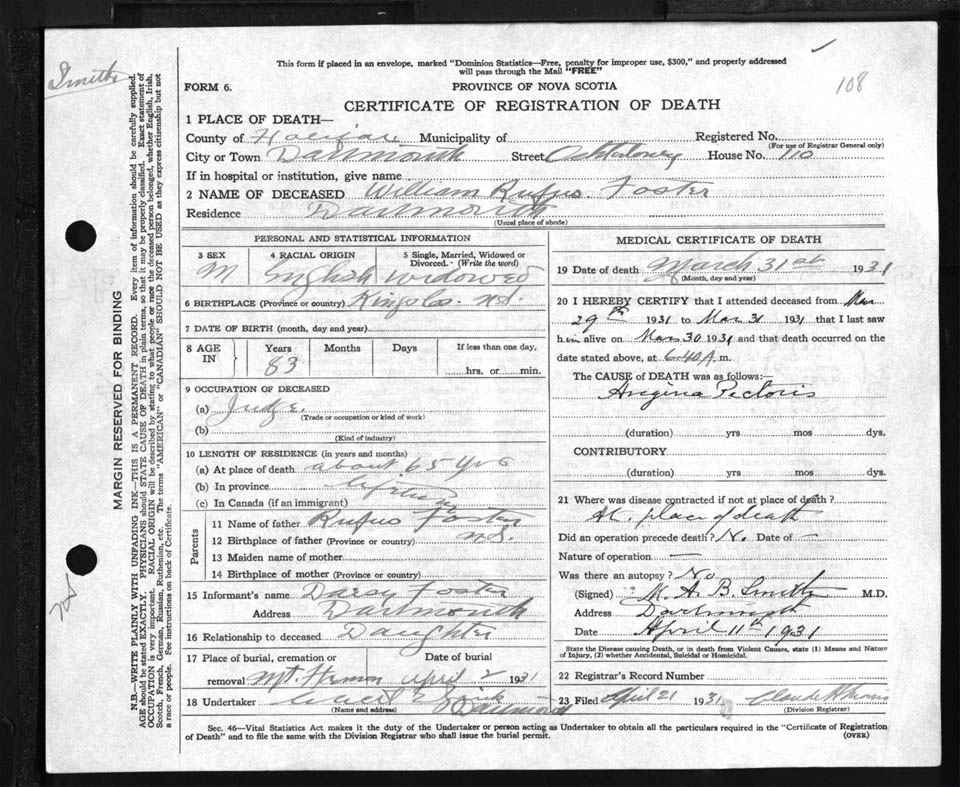 Smith
108
This form if placed in an envelope, marked "Dominion Statistics—Free, penalty for improper use, $300," and properly addressed
will pass through the Mail "FREE"
FORM 6.
PROVINCE OF NOVA SCOTIA
CERTIFICATE OF REGISTRATION OF DEATH
MARGIN RESERVED FOR BINDING
N.B.—WRITE PLAINLY WITH UNFADING INK—THIS IS A PERMANENT RECORD. Every item of information should be carefully supplied.
AGE should be stated EXACTLY. PHYSICIANS should STATE CAUSE OF DEATH in plain terms, so that it may be properly classified. Exact statement of
OCCUPATION is very important. RACIAL ORIGIN will be described by stating to what people or race the deceased person belonged, whether English, Irish,
Scotch, French, German, Russian, Ruthenian, etc. The terms "AMERICAN" or "CANADIAN" SHOULD NOT BE USED as they express citizenship but not
a race or people. See instructions on back of Certificate.
1 PLACE OF DEATH—
County of Halifax Municipality of Registered No.
(For use of Registrar General only)
City or Town Dartmouth Street House No. 110
If in hospital or institution, give name
2 NAME OF DECEASED William Rufus Foster
Residence Dartmouth
(Usual place of abode)
PERSONAL AND STATISTICAL INFORMATION
3 SEX 4 RACIAL ORIGIN 5 Single, Married, Widowed or
Divorced. (Write the word)
M English Widowed
6 BIRTHPLACE (Province or country) Kings Co. N.S.
7 DATE OF BIRTH (month, day and year)
8 AGE IN Years Months Days If less than one day,
83 hrs. or min.
9 OCCUPATION OF DECEASED
(a) Judge
(Trade or occupation or kind of work)
(b)
(Kind of industry)
10 LENGTH OF RESIDENCE (in years and months)
(a) At place of death about 65 yrs
(b) In province lifetime
(c) In Canada (if an immigrant)
Parents
11 Name of father Rufus Foster
12 Birthplace of father (Province or country) N.S.
13 Maiden name of mother
14 Birthplace of mother (Province or country)
15 Informant's name Daisy Foster
Address Dartmouth
16 Relationship to deceased Daughter
17 Place of burial, cremation or Date of burial
removal Mt. Hermon April 2 1931
18 Undertaker Dartmouth
(Name and address)
MEDICAL CERTIFICATE OF DEATH
19 Date of death March 31st 1931
(Month, day and year)
20 I HEREBY CERTIFY that I attended deceased from Mar
29th 1931 to Mar 31 1931 that I last saw
him alive on Mar 30 1931 and that death occurred on the
date stated above, at 6.40 A. m.
The CAUSE of DEATH was as follows:
Angina Pectoris
(duration) yrs mos dys.
CONTRIBUTORY
(duration) yrs mos dys.
21 Where was disease contracted if not at place of death?
At place of death
Did an operation precede death? No. Date of —
Nature of operation —
Was there an autopsy? No
(Signed) M. A. B. Smith M.D.
Address Dartmouth
Date April 11th 1931
State the Disease causing Death, or in death from Violent Causes, state (1) Means and Nature
of Injury, (2) whether Accidental, Suicidal or Homicidal.
22 Registrar's Record Number
23 Filed April 21 1931
(Division Registrar)
Sec. 46—Vital Statistics Act makes it the duty of the Undertaker or person acting as Undertaker to obtain all the particulars required in the "Certificate of Registration
of Death" and to file the same with the Division Registrar who shall issue the burial permit.
(OVER)